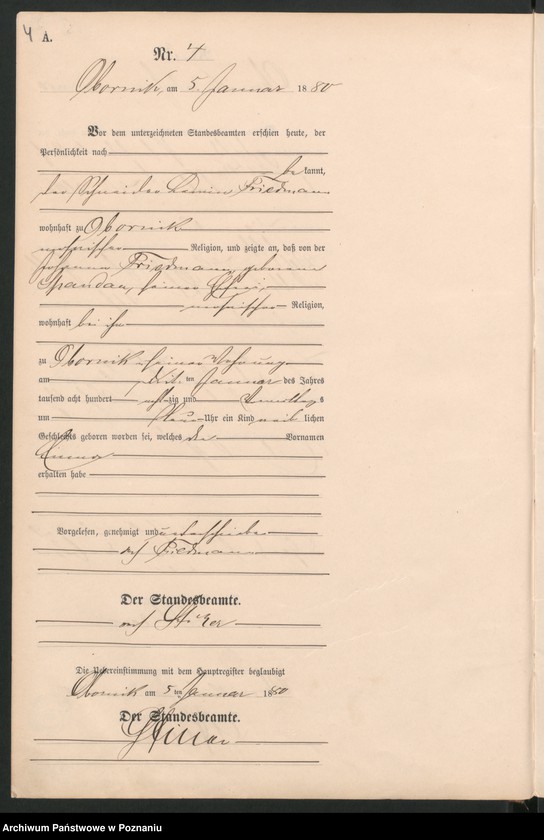 4 A.
Nr. 4
Obornik, am 5. Januar 1880
Vor dem unterzeichneten Standesbeamten erschien heute, der
Persönlichkeit nach
bekannt,
der Schneider Friedmann
wohnhaft zu Obornik
mosaischer Religion, und zeigte an, daß von der
Johanna Friedmann, geborene
Spandau, seiner Ehefrau,
mosaischer Religion,
wohnhaft bei ihm
zu Obornik seiner Wohnung
am ten Januar des Jahres
tausend acht hundert achtzig und Vormittags
um Uhr ein Kind weiblichen
Geschlechts geboren worden sei, welches den Vornamen
erhalten habe
Vorgelesen, genehmigt und unterschrieben
Friedmann
Der Standesbeamte.
Die Uebereinstimmung mit dem Hauptregister beglaubigt
Obornik am 5 ten Januar 1880
Der Standesbeamte.
Archiwum Państwowe w Poznaniu